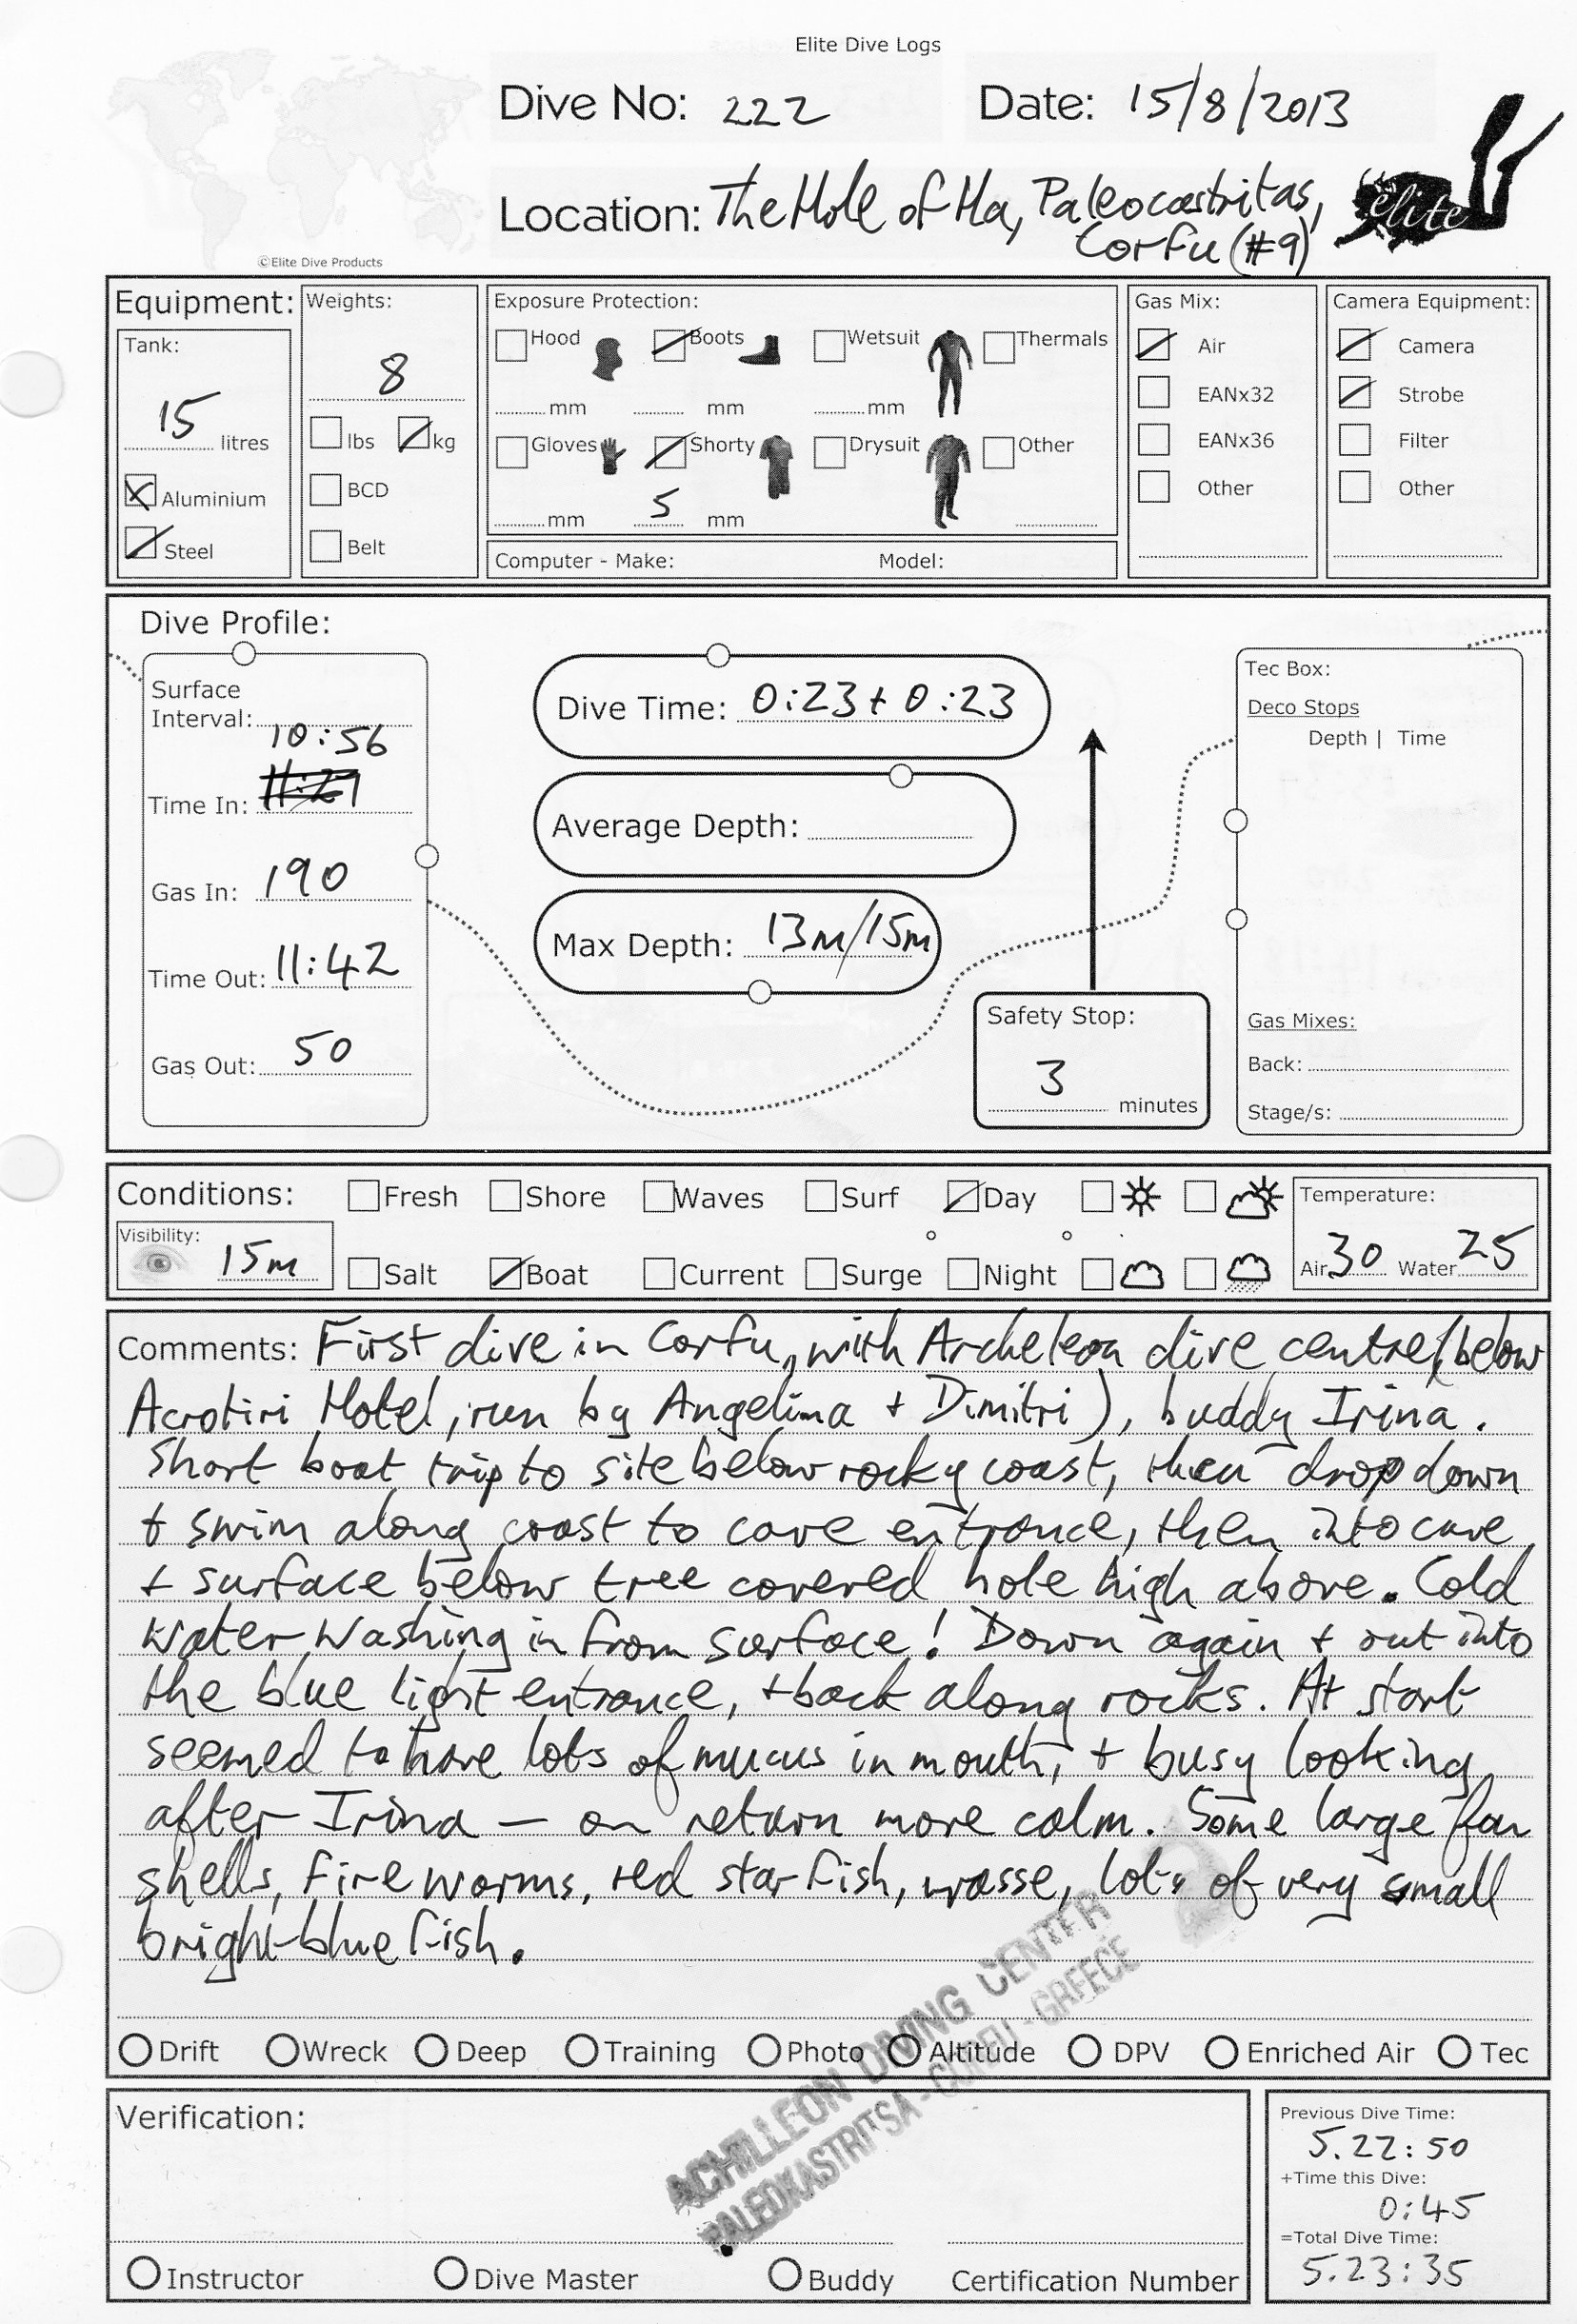 Elite Dive Logs
Dive No: 222 Date: 15/8/2013
Location: The Hole of Ha, Paleocastritas,
Corfu (#9)
elite
©Elite Dive Products
Equipment:
Tank:
15 litres
Aluminium
Steel
Weights:
8
lbs kg
BCD
Belt
Exposure Protection:
Hood Boots Wetsuit Thermals
mm mm mm
Gloves Shorty Drysuit Other
mm 5 mm
Computer - Make: Model:
Gas Mix:
Air
EANx32
EANx36
Other
Camera Equipment:
Camera
Strobe
Filter
Other
Dive Profile:
Surface
Interval:
10:56
Time In: 11:27
Gas In: 190
Time Out: 11:42
Gas Out: 50
Dive Time: 0:23 + 0:23
Average Depth:
Max Depth: 13m/15m
Safety Stop:
3 minutes
Tec Box:
Deco Stops
Depth | Time
Gas Mixes:
Back:
Stage/s:
Conditions: Fresh Shore Waves Surf Day
Visibility: 15m
Salt Boat Current Surge Night
Temperature:
Air 30 Water 25
Comments: First dive in Corfu, with Archeleon dive centre (below
Acrotiri Hotel, run by Angelina + Dimitri), buddy Irina.
Short boat trip to site below rocky coast, then drop down
+ swim along coast to cave entrance, then into cave
+ surface below tree covered hole high above. Cold
water washing in from surface! Down again + out into
the blue light entrance, + back along rocks. At start
seemed to have lots of mucus in mouth, + busy looking
after Irina — on return more calm. Some large fan
shells, fire worms, red star fish, wrasse, lots of very small
bright-blue fish.
Drift Wreck Deep Training Photo Altitude DPV Enriched Air Tec
ACHILLEON DIVING CENTER
PALEOKASTRITSA - CORFU - GREECE
Verification:
Instructor Dive Master Buddy Certification Number
Previous Dive Time:
5.22:50
+Time this Dive:
0:45
=Total Dive Time:
5.23:35